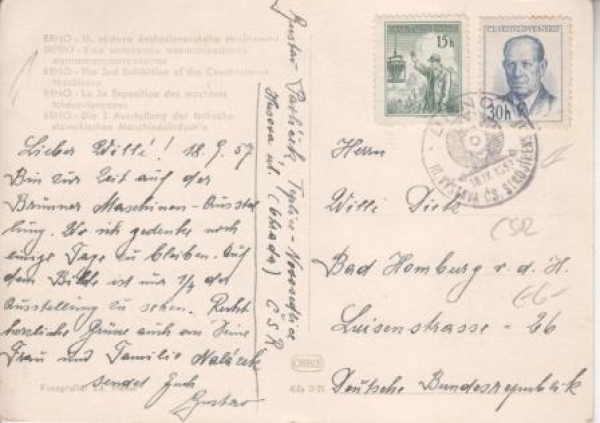 BRNO - II. výstava československého strojírenství
BRNO - The 2nd Exhibition of the Czechoslovak
Machinery
BRNO - La 2e Exposition des machines
tchécoslovaques
BRNO - Die 2 Ausstellung der tschecho-
slowakischen Maschinenindustrie
Lieber Willi! 18.9.57
Bin zur Zeit auf der
Brünner Maschinen-Ausstel
lung. Wo ich gedenke noch
einige Tage zu bleiben. Auf
dem Bilde ist nur 1/4 der
Ausstellung zu sehen. Recht
herzliche Grüße auch an Deine
Frau und Familie
sendet Euch
Gustav
Fotografie
Gustav Pavlíček Teplice-Novosedlice
Husova ul. ČSR
15h
ČESKOSLOVENSKO
30h
BRNO
II. VÝSTAVA ČS. STROJÍRENSTVÍ
Herrn
Willi Dietz
ČSR
Bad Homburg v. d. H.
Luisenstrasse - 26
Deutsche Bundesrepublik
ORBIS